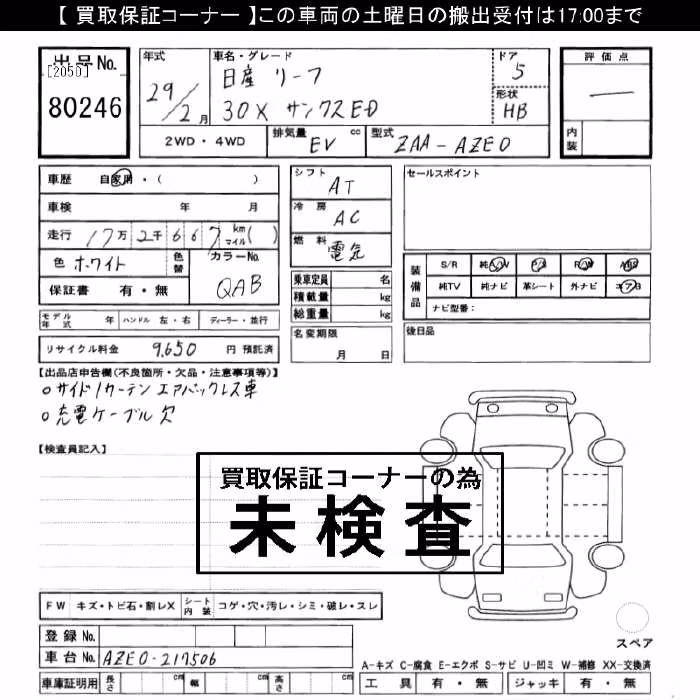 【 買取保証コーナー 】この車両の土曜日の搬出受付は17:00まで
出品No. [2050] 80246
年式 29/2月
車名・グレード 日産 リーフ 30X サンクスED
ドア 5
形状 HB
評価点 —
内装
2WD・4WD 排気量 EV cc 型式 ZAA-AZE0
車歴 自家用・( )
車検 年 月
走行 17万2千667 km マイル( )
色 ホワイト 色替 カラーNo. QAB
保証書 有・無
シフト AT
冷房 AC
燃料 電気
乗車定員 名
積載量 kg
総重量 kg
セールスポイント
装備品 S/R 純AW P/S P/W ABS
純TV 純ナビ 革シート 外ナビ エアB
ナビ型番:
モデル年式 年 ハンドル 左・右 ディーラー・並行
名変期限 月 日
後日品
リサイクル料金 9,650 円 預託済
【出品店申告欄(不良箇所・欠品・注意事項等)】
○サイド/カーテン エアバックレス車
○充電ケーブル欠
【検査員記入】
買取保証コーナーの為
未検査
FW キズ・トビ石・割レX シート内装 コゲ・穴・汚レ・シミ・破レ・スレ
スペア
登録No.
車台No. AZE0-217506
A-キズ C-腐食 E-エクボ S-サビ U-凹ミ W-補修 XX-交換済
車庫証明用 長さ cm 幅 cm 高さ cm 工具 有・無 ジャッキ 有・無